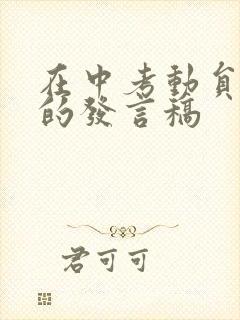 在中考動員
的發言稿
君可可